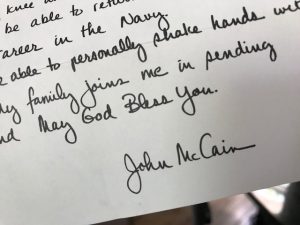 knee
be able to
career in the Navy.
able to personally shake hands
My family joins me in sending
nd May God Bless You.
John McCain